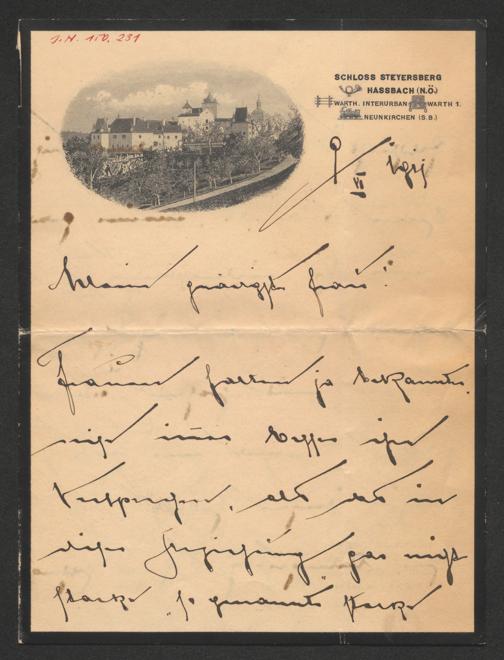 J.N. 150.231
SCHLOSS STEYERSBERG
HASSBACH (N.Ö.)
WARTH. INTERURBAN WARTH 1.
NEUNKIRCHEN (S.B.)
Meine gnädigste Frau!
Frauen halten ja
immer besser ihr
Versprechen, als das in
dieser Beziehung gar nicht
starke, so genannte starke